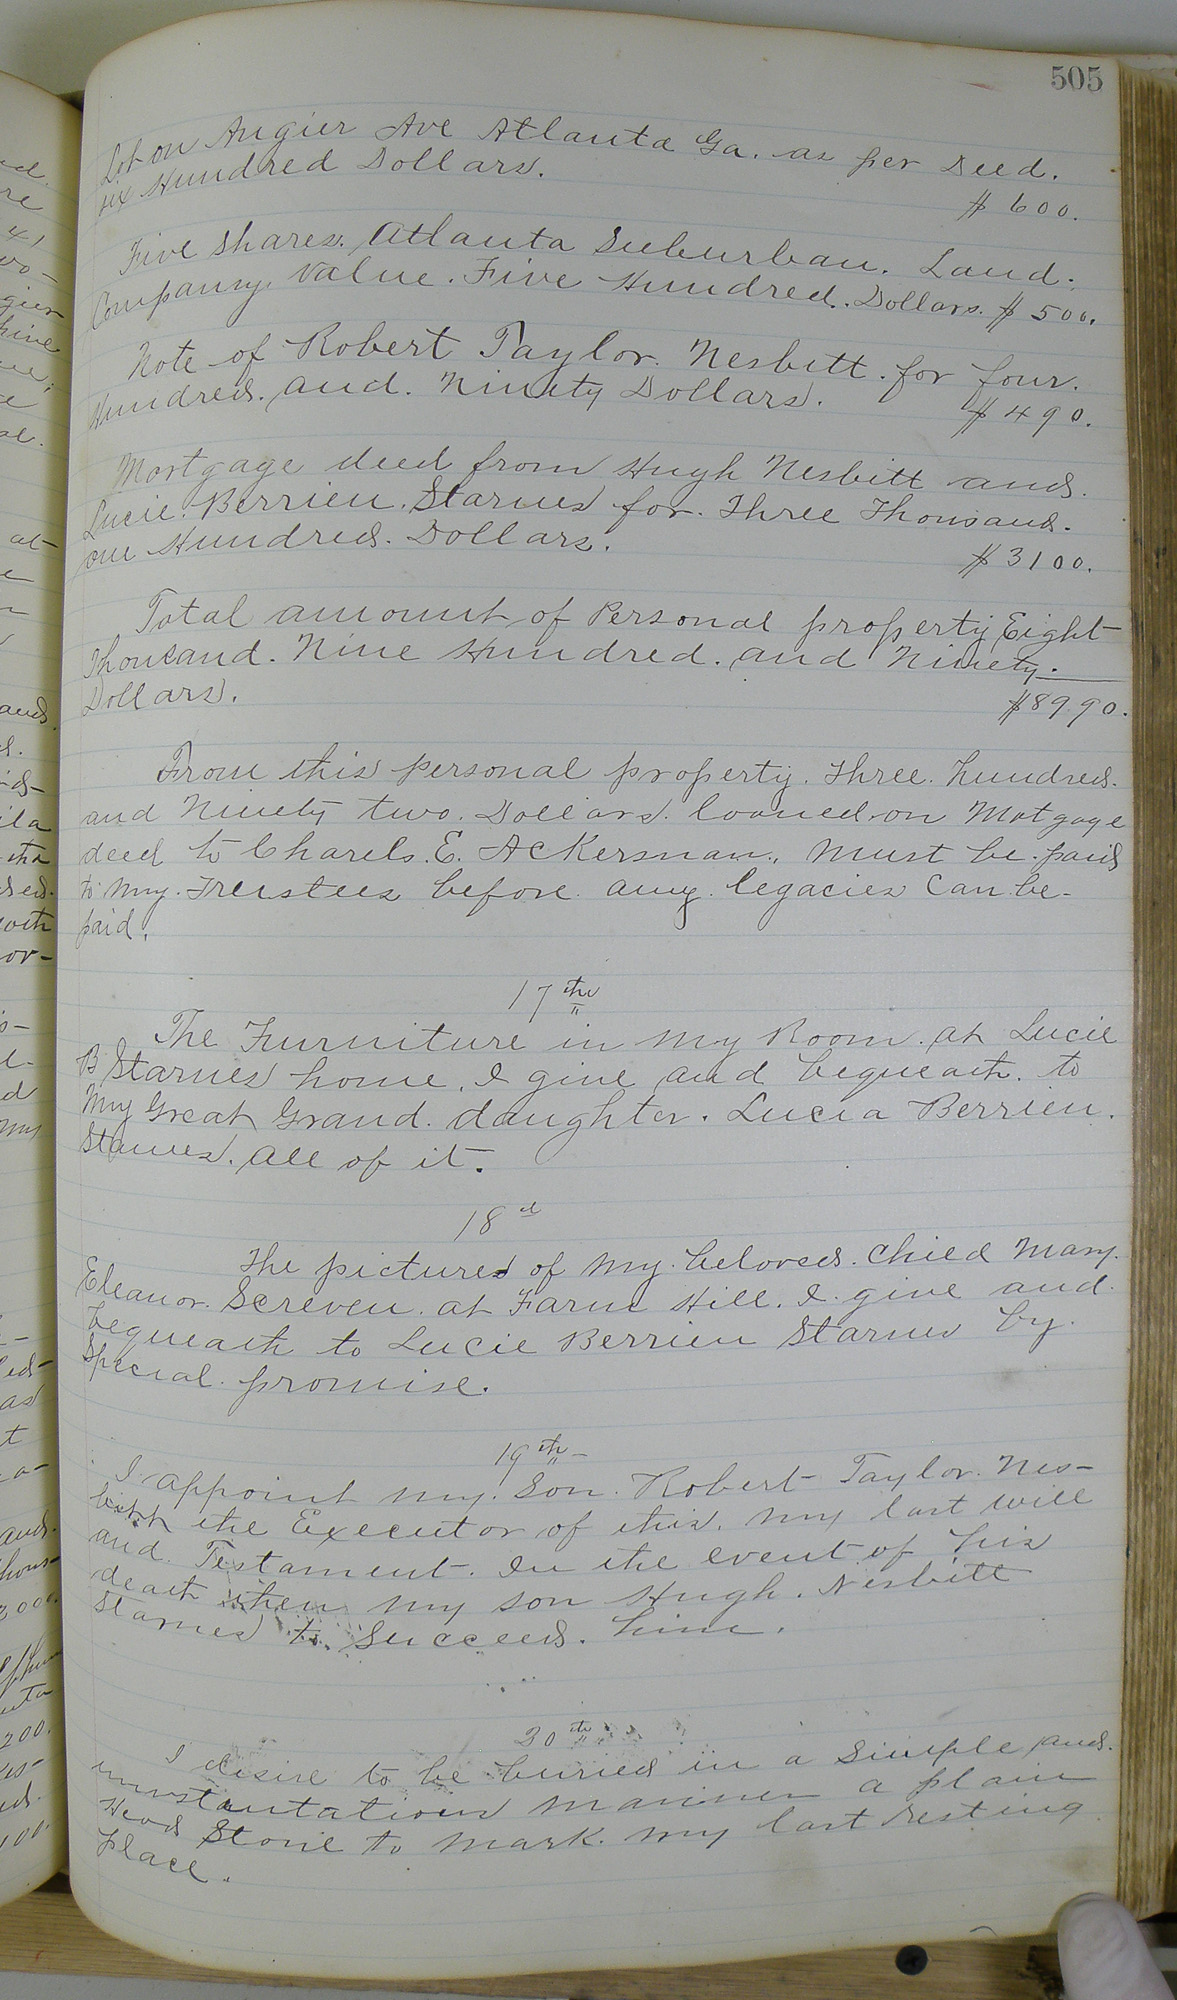 505
Lot on Angier Ave Atlanta Ga. as per Deed.
six Hundred Dollars.
$600.
Five Shares. Atlanta Suburban. Land.
Company. Value. Five Hundred. Dollars. $500.
Note of Robert Taylor. Nesbitt. for four.
Hundred. and. Ninety Dollars.
$490.
Mortgage deed from Hugh Nesbitt and.
Lucie. Berrien. Starnes for. Three Thousand.
one Hundred. Dollars.
$3100.
Total amount of Personal property Eight
Thousand. Nine Hundred. and Ninety.
Dollars.
$8990.
From this personal property. Three. hundred.
and Ninety two. Dollars. loaned on Motgage
deed to Charels. E. Ackersman., Must be. paid
to My. Trustees before any legacies Can be-
paid.
17th
The Furniture in My Room. at Lucie
B Starnes home. I give and bequeath. to
My Great Grand. daughter. Lucia Berrien.
Starnes. all of it.
18d
The pictures of My. beloved. Chied Mary.
Eleanor. Screven. at Farm Hill. I. give and.
bequeath to Lucie Berrien Starnes by.
Special. promise.
19th-
I appoint my. Son. Robert Taylor. Nes-
bitt the Executor of this. my last will
and Testament. In the event of his
death then my son Hugh. Nesbitt
Starnes to Succeed. him.
30th
I desire to be buried in a Simple and.
manner a plain
Head Stone to Mark. my last resting
place.
ands.
200.
100.